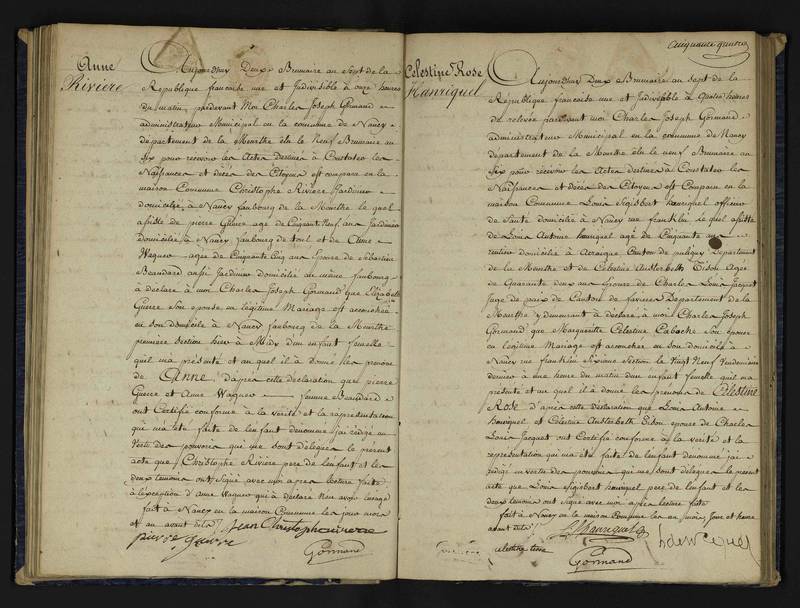 Anne
Riviere
Aujourd'huy Deux Brumaire an Sept de la
République francoise une et Indivisible à onze heures
du matin, pardevant Moi Charles Joseph Gormand
administrateur Municipal en la commune de Nancy
département de la Meurthe élu le Neuf Brumaire an
Six pour recevoir les Actes destinés à Constater les
Naissances et décès des Citoyens est comparu en la
maison Commune Christophe Riviere Jardinier
domicilié à Nancy faubourg de la Meurthe le quel
assisté de pierre Guerre agé de Cinquante Neuf ans Jardinier
Domicilié à Nancy faubourg de toul et de Anne
Wagner agée de Cinquante Cinq ans Epouse de Sébastien
Beaudard aussi Jardinier Domicilié au même faubourg
à déclaré à moi Charles Joseph Gormand que Elizabeth
Guerre Son épouse en légitime Mariage est accouchée
en son domicile à Nancy faubourg de la Meurthe
première Section hier à Midy d'un enfant femelle
quil ma présenté et au quel il à donné les prenoms
de Anne d'après cette déclaration que pierre
Guerre et Anne Wagner femme Beaudard
ont Certifié conforme à la vérité et la représentation
qui ma été faite de l'enfant denommé j'ai rédigé en
Vertu des pouvoirs qui me sont délégués le présent
acte que Christophe Riviere pere de l'enfant et les
deux temoins ont Signé avec moi apres lecture faite
à l'exception d'anne Wagner qui à déclaré N'en avoir l'usage
fait à Nancy en la maison Commune les jour mois
et an avant dits / Jean Christophe riviere
pierre guerre
Gormand
Cinquante quatre
Celestine Rose
Hanriquel
Aujourd'huy Deux Brumaire an sept de la
République francoise une et Indivisible à quatre heures
de relevée pardevant moi Charles Joseph Gormand
administrateur Municipal en la commune de Nancy
département de la Meurthe élu le neuf Brumaire an
Six pour recevoir les Actes destinés à Constater les
Naissances et décès des Citoyens est Comparu en la
maison Commune Louis Sigisbert hanriquel officier
de Santé domicilié à Nancy rue franklin le quel assisté
de Louis Antoine hanriquel agé de Cinquante ans
rentier domicilié à Canton de puligny Département
de la Meurthe et de Celestine Austerbeth Tison Agée
de Quarante deux ans Epouse de Charles Louis Jacquet
Juge de paix du Canton de favieres Département de la
Meurthe y demeurant à déclaré à moi Charles Joseph
Gormand que Marguerite Celestine Caboche Son épouse
en légitime Mariage est accouchée en son domicile à
Nancy rue franklin Sixieme Section le Vingt Neuf Vendemiaire
dernier à une heure du matin d'un enfant femelle quil ma
présenté et au quel il à donné les prenoms de Celestine
Rose d'après cette déclaration que Louis Antoine
hanriquel et Celestine Austerbeth Tison épouse de Charles
Louis Jacquet ont Certifié conforme à la verité et la
représentation qui ma été faite de l'enfant denommé j'ai
rédigé en vertu des pouvoirs qui me sont délégués le présent
acte que Louis Sigisbert hanriquel pere de l'enfant et les
deux temoins ont Signé avec moi après lecture faite
fait à Nancy en la maison commune les an mois, Jour et heure
avant dits /. L S hanriquel
celestine tison
Gormand